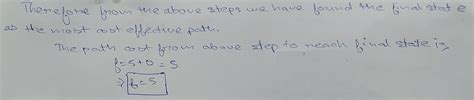 Therefore from the above steps we have found the final state
as the most cost effective path.
The path cost from above step to reach final state is,
f = 5+0 = 5
⇒ f = 5